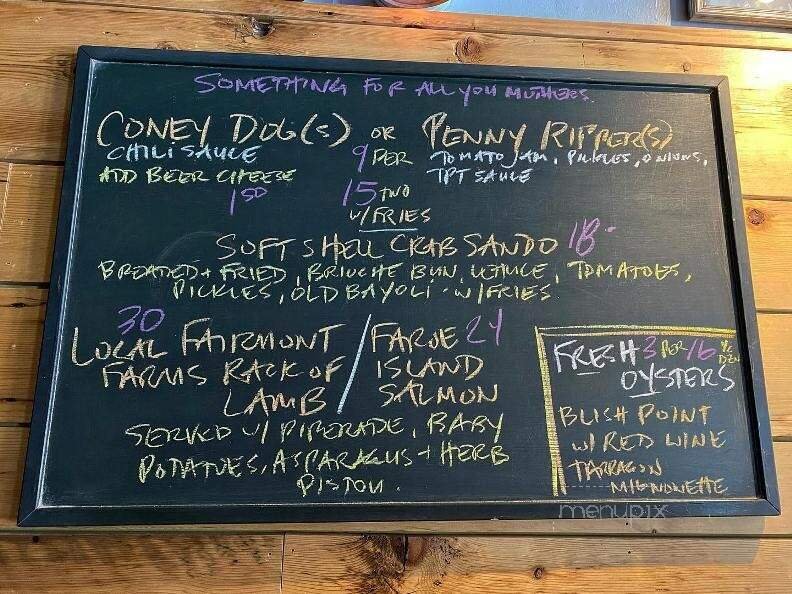 SOMETHING FOR ALL YOU MUTHERS.
CONEY DOG(S) OR PENNY RIPPER(S)
CHILI SAUCE 9 PER TOMATO JAM, PICKLES, ONIONS,
ADD BEER CHEESE 15 TWO TPT SAUCE
1.50 W/FRIES
SOFT SHELL CRAB SANDO 18-
BREADED + FRIED, BRIOCHE BUN, LETTUCE, TOMATOES,
PICKLES, OLD BAYOLI - W/FRIES
30
LOCAL FAIRMONT / FAROE 24
FARMS RACK OF ISLAND
LAMB SALMON
SERVED W/ PIPERADE, BABY
POTATOES, ASPARAGUS + HERB
PISTOU.
FRESH 3 PER/16 ½ DZN
OYSTERS
BLISH POINT
W/ RED WINE
TARRAGON
MIGNONETTE
menupix